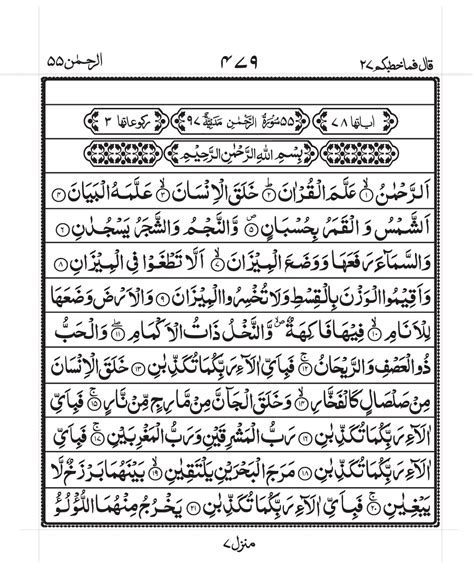 الرحمٰن ۵۵ ۴۷۹ قال فما خطبكم ۲۷
اٰیاتھا ۷۸ ۵۵ سُوْرَةُ الرَّحْمٰنِ مَدَنِيَّةٌ ۹۷ رکوعاتھا ۳
بِسْمِ اللهِ الرَّحْمٰنِ الرَّحِيْمِ
اَلرَّحْمٰنُ ۙ﴿۱﴾ عَلَّمَ الْقُرْاٰنَ ؕ﴿۲﴾ خَلَقَ الْاِنْسَانَ ۙ﴿۳﴾ عَلَّمَهُ الْبَيَانَ ﴿۴﴾
اَلشَّمْسُ وَ الْقَمَرُ بِحُسْبَانٍ ۪﴿۵﴾ وَّ النَّجْمُ وَ الشَّجَرُ يَسْجُدٰنِ ﴿۶﴾
وَ السَّمَآءَ رَفَعَهَا وَ وَضَعَ الْمِيْزَانَ ۙ﴿۷﴾ اَلَّا تَطْغَوْا فِي الْمِيْزَانِ ﴿۸﴾
وَ اَقِيْمُوا الْوَزْنَ بِالْقِسْطِ وَ لَا تُخْسِرُوا الْمِيْزَانَ ﴿۹﴾ وَ الْاَرْضَ وَضَعَهَا
لِلْاَنَامِ ۙ﴿۱۰﴾ فِيْهَا فَاكِهَةٌ ۪ۙ وَّ النَّخْلُ ذَاتُ الْاَكْمَامِ ۖ﴿۱۱﴾ وَ الْحَبُّ
ذُو الْعَصْفِ وَ الرَّيْحَانُ ۚ﴿۱۲﴾ فَبِاَيِّ اٰلَآءِ رَبِّكُمَا تُكَذِّبٰنِ ﴿۱۳﴾ خَلَقَ الْاِنْسَانَ
مِنْ صَلْصَالٍ كَالْفَخَّارِ ۙ﴿۱۴﴾ وَ خَلَقَ الْجَآنَّ مِنْ مَّارِجٍ مِّنْ نَّارٍ ۚ﴿۱۵﴾ فَبِاَيِّ
اٰلَآءِ رَبِّكُمَا تُكَذِّبٰنِ ﴿۱۶﴾ رَبُّ الْمَشْرِقَيْنِ وَ رَبُّ الْمَغْرِبَيْنِ ۚ﴿۱۷﴾ فَبِاَيِّ
اٰلَآءِ رَبِّكُمَا تُكَذِّبٰنِ ﴿۱۸﴾ مَرَجَ الْبَحْرَيْنِ يَلْتَقِيٰنِ ۙ﴿۱۹﴾ بَيْنَهُمَا بَرْزَخٌ لَّا
يَبْغِيٰنِ ۚ﴿۲۰﴾ فَبِاَيِّ اٰلَآءِ رَبِّكُمَا تُكَذِّبٰنِ ﴿۲۱﴾ يَخْرُجُ مِنْهُمَا اللُّؤْلُؤُ
منزل ۷